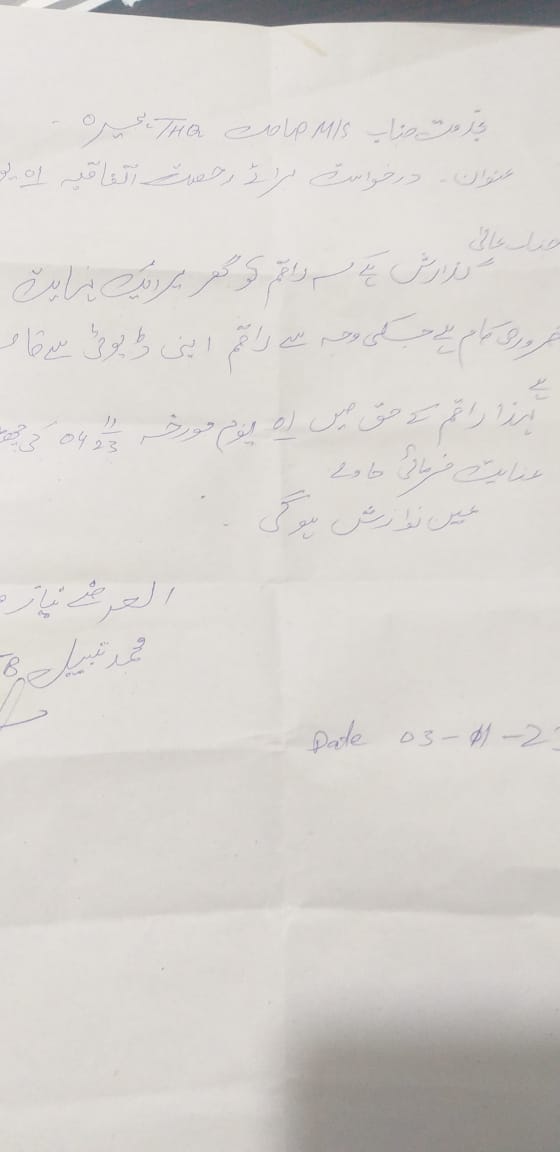 بخدمت جناب M/S صاحب THQ ہجیرہ -
عنوان - درخواست برائے رخصت اتفاقیہ 01
جناب عالی
گذارش ہے کہ راقم کو گھر پر ایک نہایت
ضروری کام ہے جسکی وجہ سے راقم اپنی ڈیوٹی سے
ہے
لہذا راقم کے حق میں 01 یوم مورخہ 04 11 23 کی
عنایت فرمائی جاوے
عین نوازش ہوگی
العرضے نیاز
محمد نبیل
Date 03-11-23